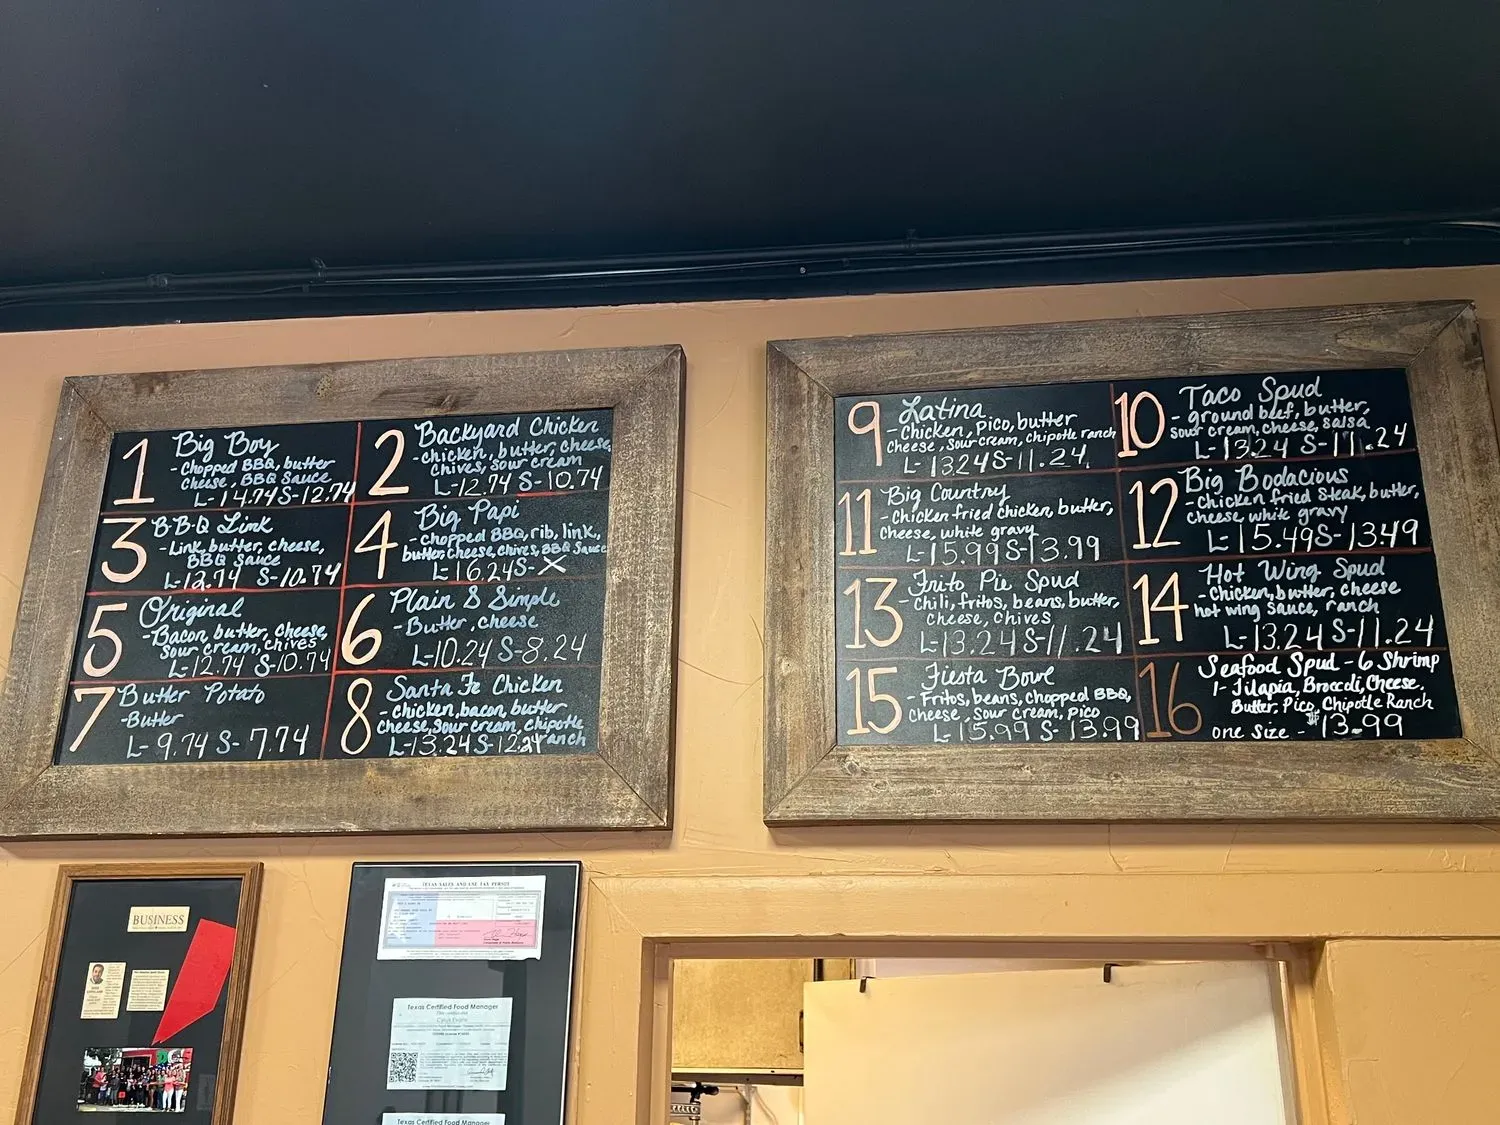 1 Big Boy
- Chopped BBQ, butter
cheese, BBQ Sauce
L-14.74 S-12.74
2 Backyard Chicken
- chicken, butter, cheese,
chives, sour cream
L-12.74 S-10.74
3 B-B-Q Link
- Link, butter, cheese,
BBQ Sauce
L-12.74 S-10.74
4 Big Papi
- chopped BBQ, rib, link,
butter, cheese, chives, BBQ Sauce
L-16.24 S-X
5 Original
- Bacon, butter, cheese,
sour cream, chives
L-12.74 S-10.74
6 Plain & Simple
- Butter, cheese
L-10.24 S-8.24
7 Butter Potato
- Butter
L-9.74 S-7.74
8 Santa Fe Chicken
- chicken, bacon, butter
cheese, sour cream, chipotle
ranch
L-13.24 S-12.24
9 Latina
- Chicken, pico, butter
cheese, sour cream, chipotle ranch
L-13.24 S-11.24
10 Taco Spud
- ground beef, butter,
sour cream, cheese, salsa
L-13.24 S-11.24
11 Big Country
- Chicken fried chicken, butter,
cheese, white gravy
L-15.99 S-13.99
12 Big Bodacious
- Chicken fried steak, butter,
cheese, white gravy
L-15.49 S-13.49
13 Frito Pie Spud
- Chili, fritos, beans, butter,
cheese, chives
L-13.24 S-11.24
14 Hot Wing Spud
- Chicken, butter, cheese
hot wing sauce, ranch
L-13.24 S-11.24
15 Fiesta Bowl
- Fritos, beans, chopped BBQ,
cheese, sour cream, pico
L-15.99 S-13.99
16 Seafood Spud - 6 Shrimp
1- Tilapia, Broccoli, Cheese.
Butter, Pico, Chipotle Ranch
one size - $13.99
BUSINESS
TEXAS SALES AND USE TAX PERMIT
Texas Certified Food Manager
Texas Certified Food Manager